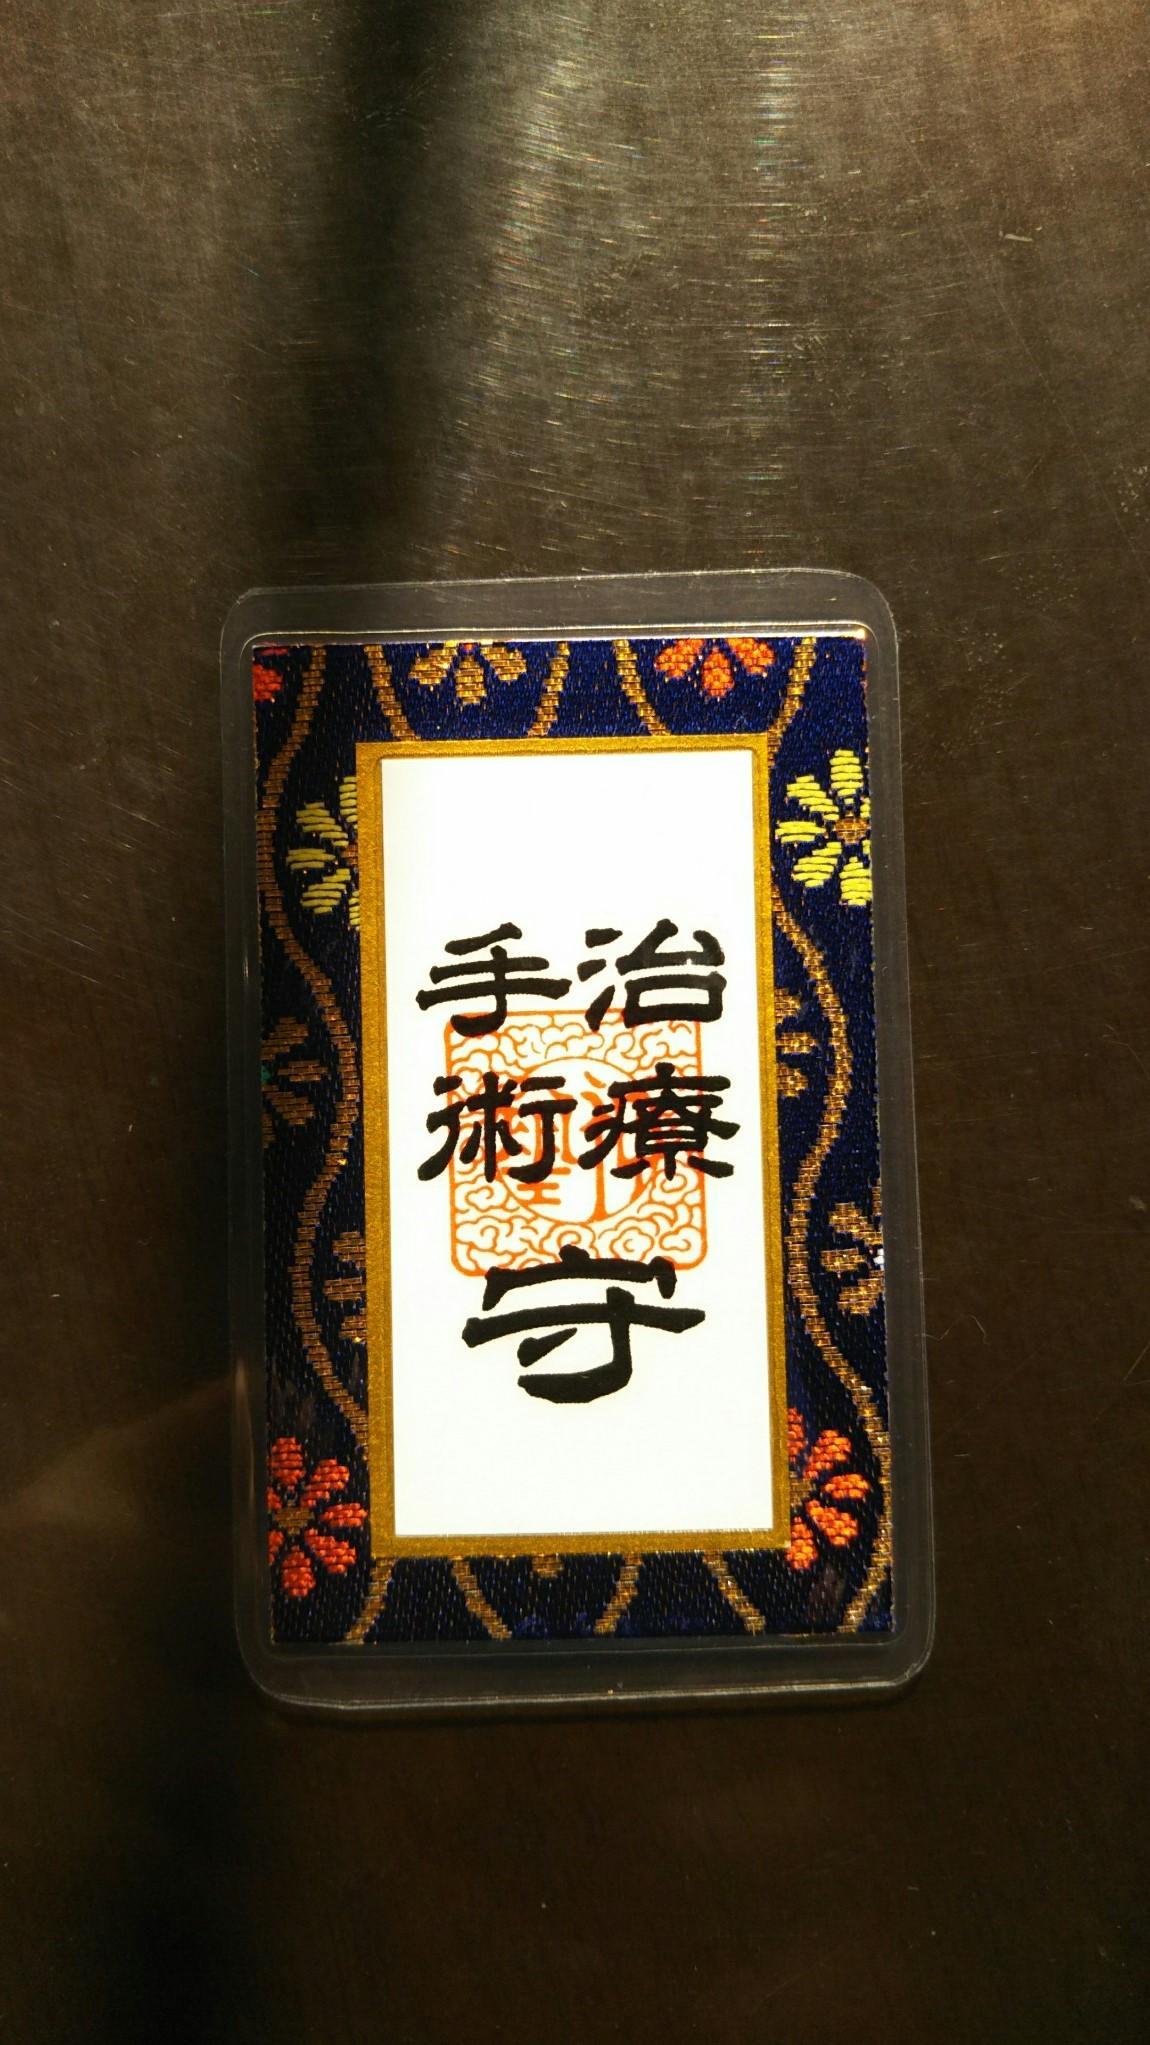 治療
手術
守